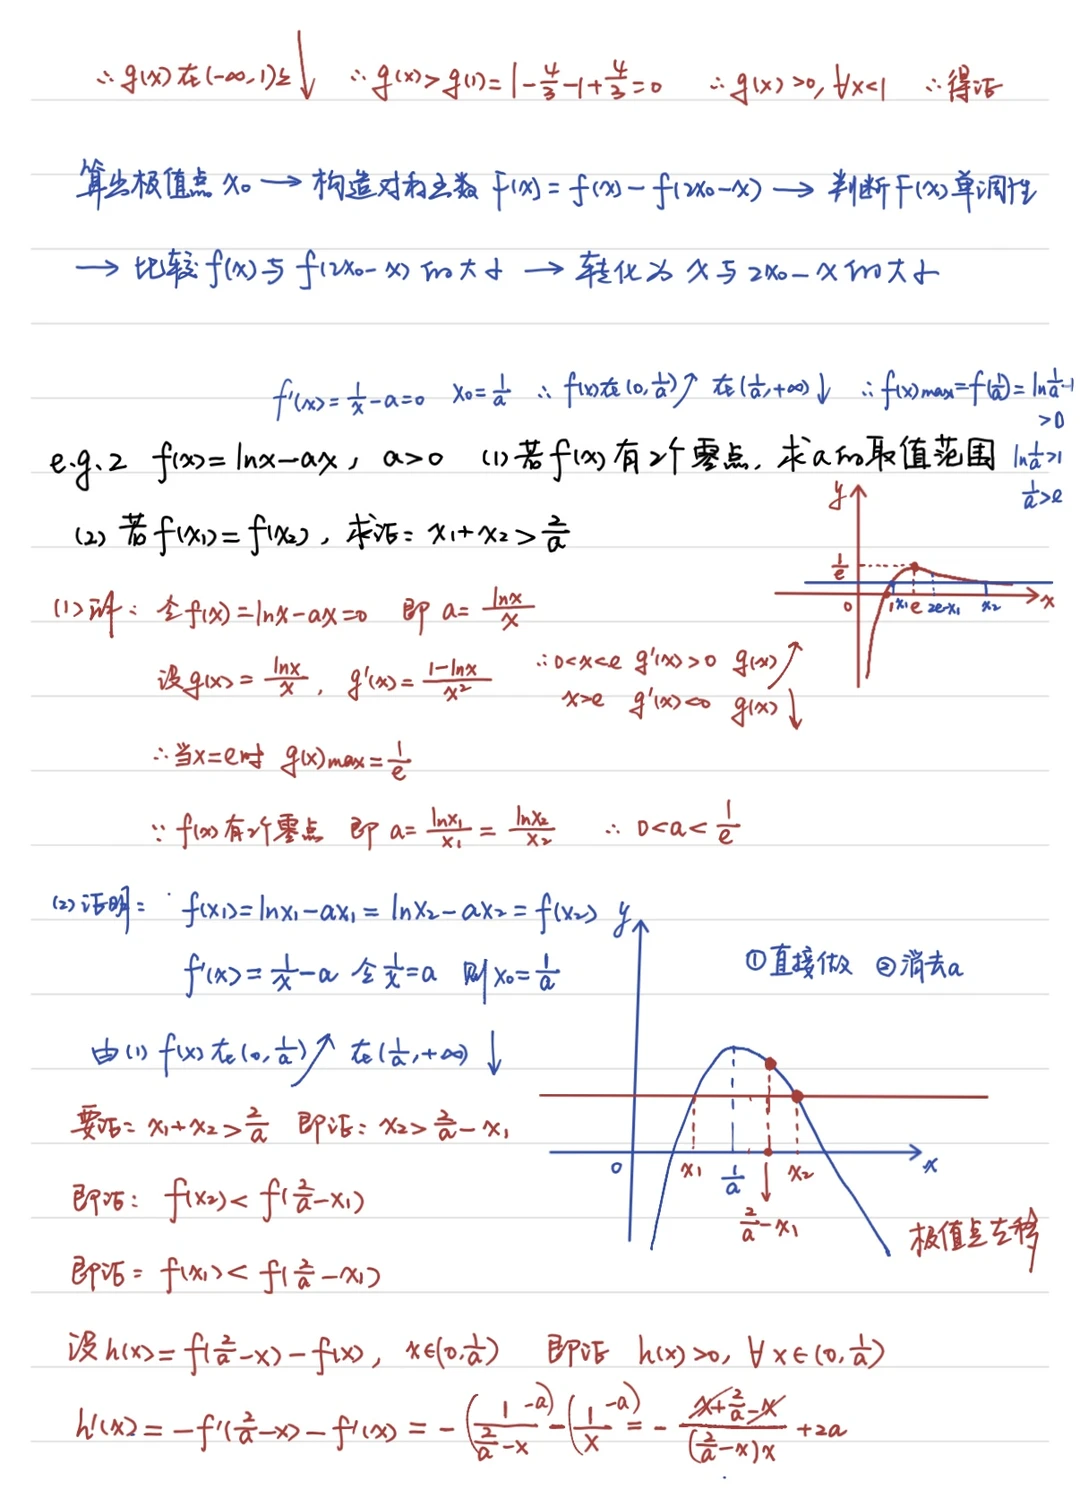 ∴ g(x) 在 (-∞,1) 上 ↓ ∴ g(x) > g(1) = 1 - 4/3 - 1 + 4/3 = 0 ∴ g(x) > 0, ∀x<1 ∴ 得证
算出极值点 x₀ → 构造对称函数 F(x) = f(x) - f(2x₀-x) → 判断 F(x) 单调性
→ 比较 f(x) 与 f(2x₀-x) 的大小 → 转化为 x 与 2x₀-x 的大小
f'(x) = 1/x - a = 0 x₀ = 1/a ∴ f(x) 在 (0, 1/a) ↗ 在 (1/a, +∞) ↓ ∴ f(x)max = f(1/a) = ln 1/a - 1
>0
e.g.2 f(x) = lnx - ax, a>0 (1) 若 f(x) 有2个零点, 求 a 的取值范围
ln 1/a > 1
1/a > e
(2) 若 f(x₁) = f(x₂), 求证: x₁+x₂ > 2/a
y
1/e
0 1 x₁ e 2e-x₁ x₂ x
(1) 解: 令 f(x) = lnx - ax = 0 即 a = lnx/x
设 g(x) = lnx/x, g'(x) = (1-lnx)/x² ∴ 0<x<e g'(x)>0 g(x) ↗
x>e g'(x)<0 g(x) ↓
∴ 当 x=e 时 g(x)max = 1/e
∵ f(x) 有2个零点 即 a = lnx₁/x₁ = lnx₂/x₂ ∴ 0<a<1/e
(2) 证明: f(x₁) = lnx₁ - ax₁ = lnx₂ - ax₂ = f(x₂)
f'(x) = 1/x - a 令 1/x = a 则 x₀ = 1/a
① 直接做 ② 消去a
由(1) f(x) 在 (0, 1/a) ↗ 在 (1/a, +∞) ↓
要证: x₁+x₂ > 2/a 即证: x₂ > 2/a - x₁
即证: f(x₂) < f(2/a - x₁)
即证: f(x₁) < f(2/a - x₁)
y
0 x₁ 1/a x₂ x
2/a - x₁
极值点左移
设 h(x) = f(2/a - x) - f(x), x∈(0, 1/a) 即证 h(x)>0, ∀x∈(0, 1/a)
h'(x) = -f'(2/a - x) - f'(x) = -(1/(2/a - x) - a) - (1/x - a) = - (x + 2/a - x)/((2/a - x)x) + 2a